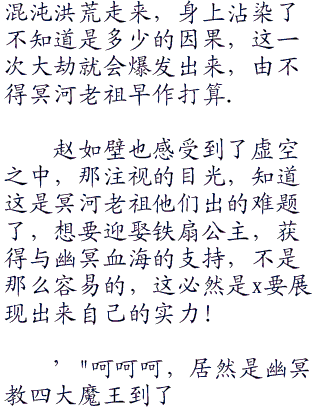 混沌洪荒走来，身上沾染了
不知道是多少的因果，这一
次大劫就会爆发出来，由不
得冥河老祖早作打算.
赵如壁也感受到了虚空
之中，那注视的目光，知道
这是冥河老祖他们出的难题
了，想要迎娶铁扇公主，获
得与幽冥血海的支持，不是
那么容易的，这必然是x要展
现出来自己的实力！
’"呵呵呵，居然是幽冥
教四大魔王到了